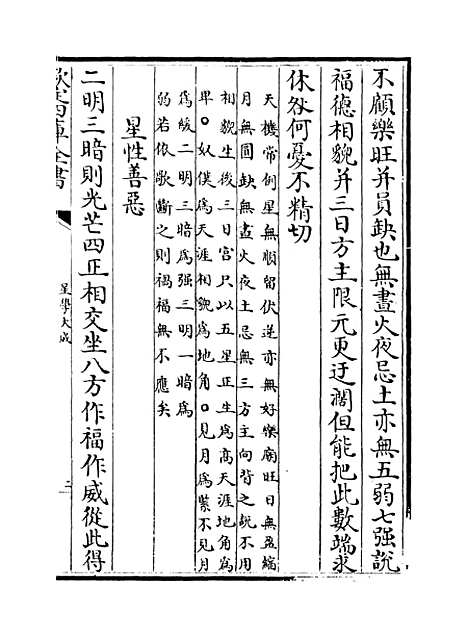 不顧樂旺并員缺也無晝火夜忌土亦無五弱七强說
福德相貌并三日方主限元更迂濶但能把此數端求
休咎何憂不精切
天機常例星無順留伏逆亦無好樂廟旺日無盈縮
月無圓缺無晝火夜土忌無三方主向背之說不用
相貌生後三日宮只以五星正生為高天涯地角為
卑○奴僕為天涯相貌為地角○見月為緊不見月
為緩二明三暗為强三明一暗為
的若依歌斷之則禍福無不應矣
星性善惡
二明三暗則光芒四正相交坐八方作福作威從此得
欽定四庫全書
星學大成
二